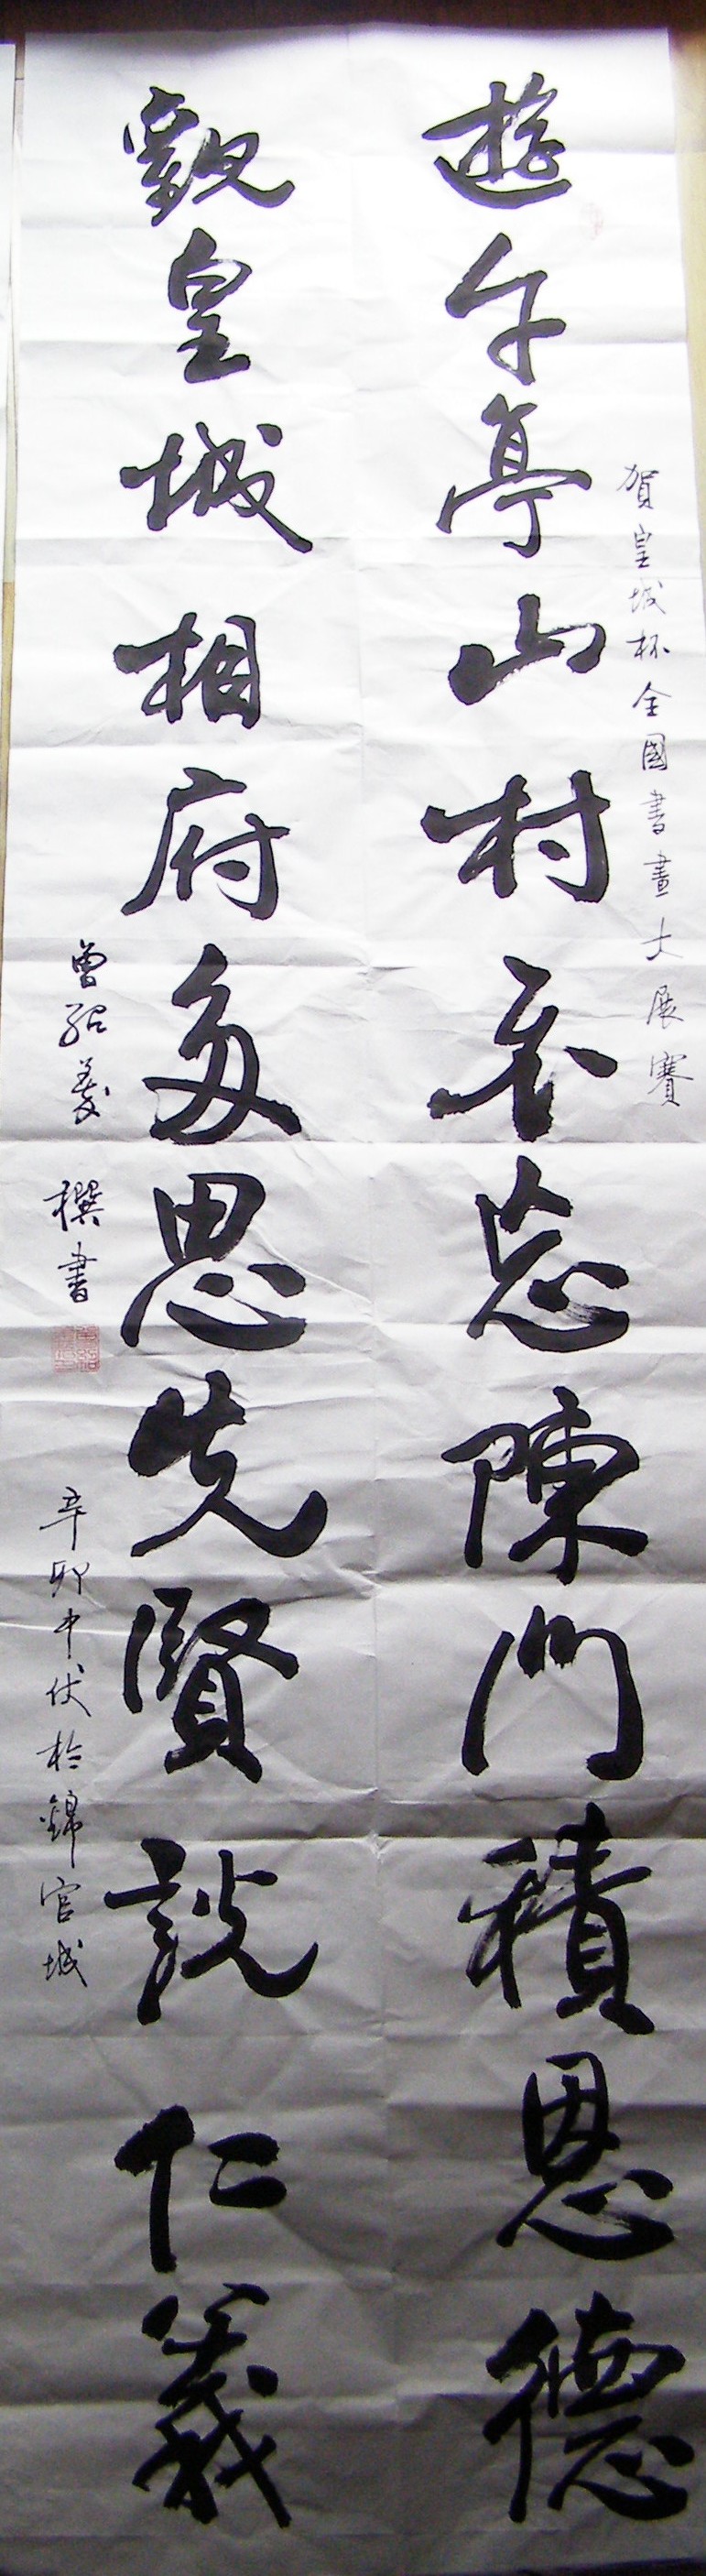 賀皇城杯全國書畫大展賽
遊午亭山村不忘陳門積恩德
觀皇城相府多思先賢說仁義
曾紹義 撰書
辛卯中伏於錦官城